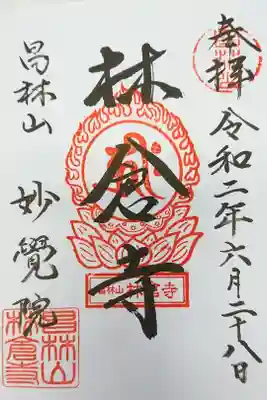 奉拝
令和二年六月二十八日
林倉寺
昌林山
妙覺院
昌林山
林倉寺